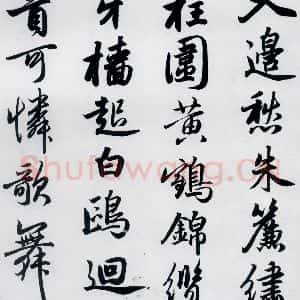 入邊愁朱簾繡
柱圍黃鶴錦纜
牙檣起白鷗迴
首可憐歌舞
Shufawang.cn